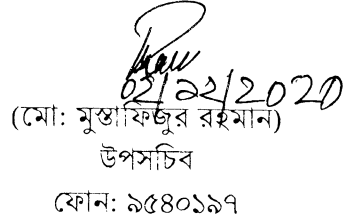 ০২/১২/2020
(মো: মুস্তাফিজুর রহমান)
উপসচিব
ফোন: ৯৫৪০১৯৭